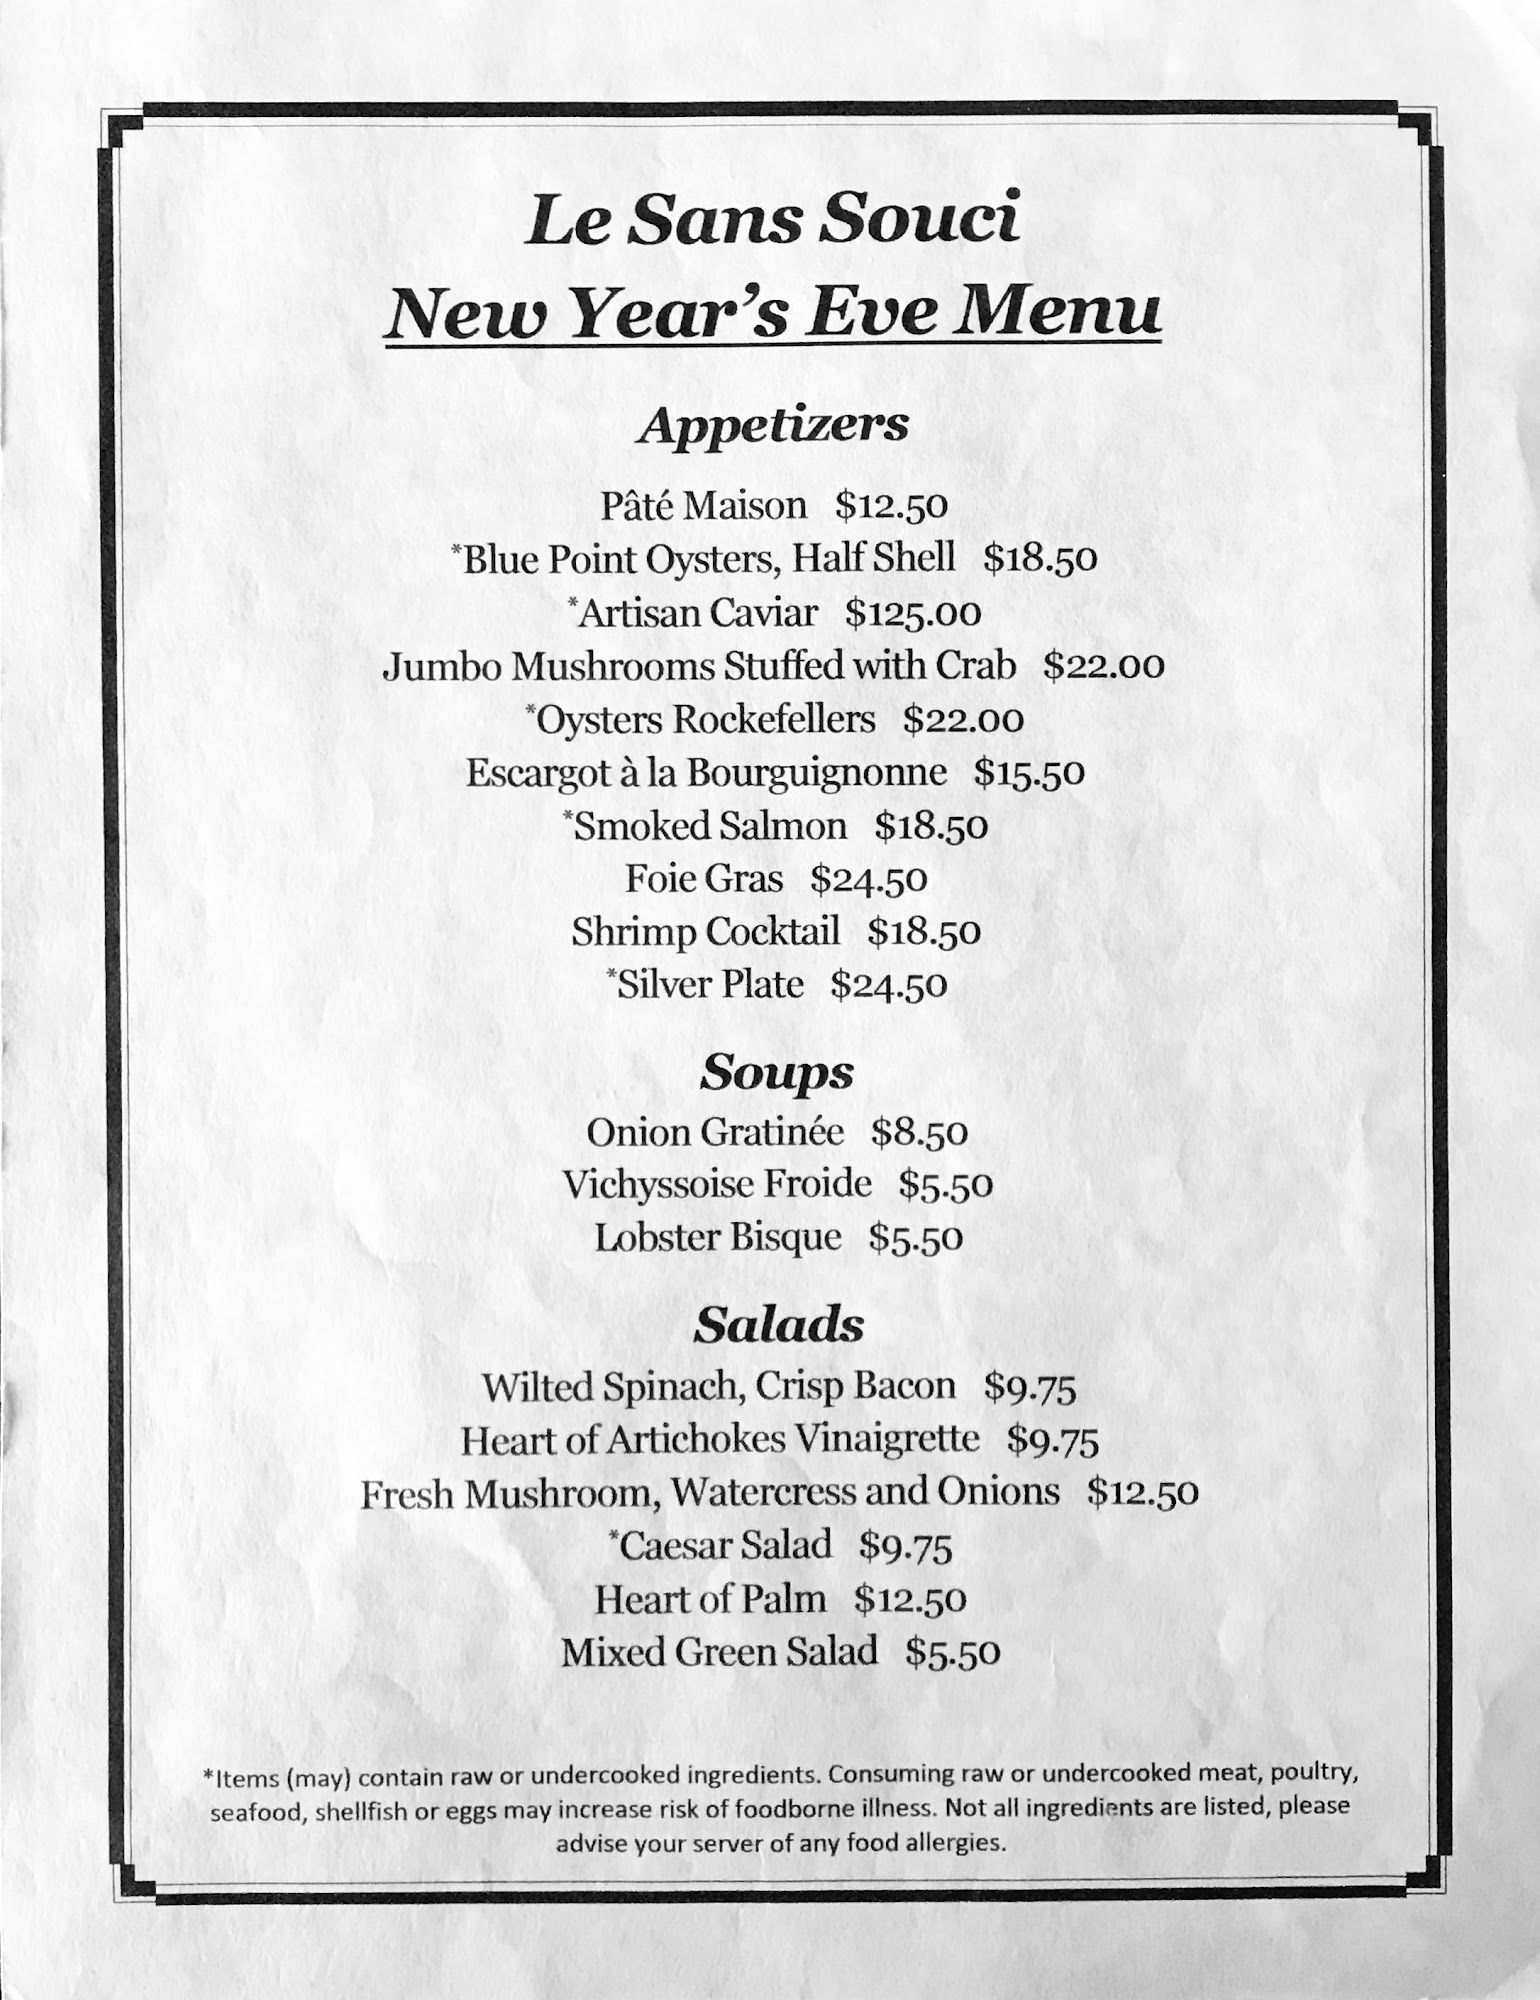 Le Sans Souci
New Year's Eve Menu
Appetizers
Pâté Maison $12.50
*Blue Point Oysters, Half Shell $18.50
*Artisan Caviar $125.00
Jumbo Mushrooms Stuffed with Crab $22.00
*Oysters Rockefellers $22.00
Escargot à la Bourguignonne $15.50
*Smoked Salmon $18.50
Foie Gras $24.50
Shrimp Cocktail $18.50
*Silver Plate $24.50
Soups
Onion Gratinée $8.50
Vichyssoise Froide $5.50
Lobster Bisque $5.50
Salads
Wilted Spinach, Crisp Bacon $9.75
Heart of Artichokes Vinaigrette $9.75
Fresh Mushroom, Watercress and Onions $12.50
*Caesar Salad $9.75
Heart of Palm $12.50
Mixed Green Salad $5.50
*Items (may) contain raw or undercooked ingredients. Consuming raw or undercooked meat, poultry,
seafood, shellfish or eggs may increase risk of foodborne illness. Not all ingredients are listed, please
advise your server of any food allergies.